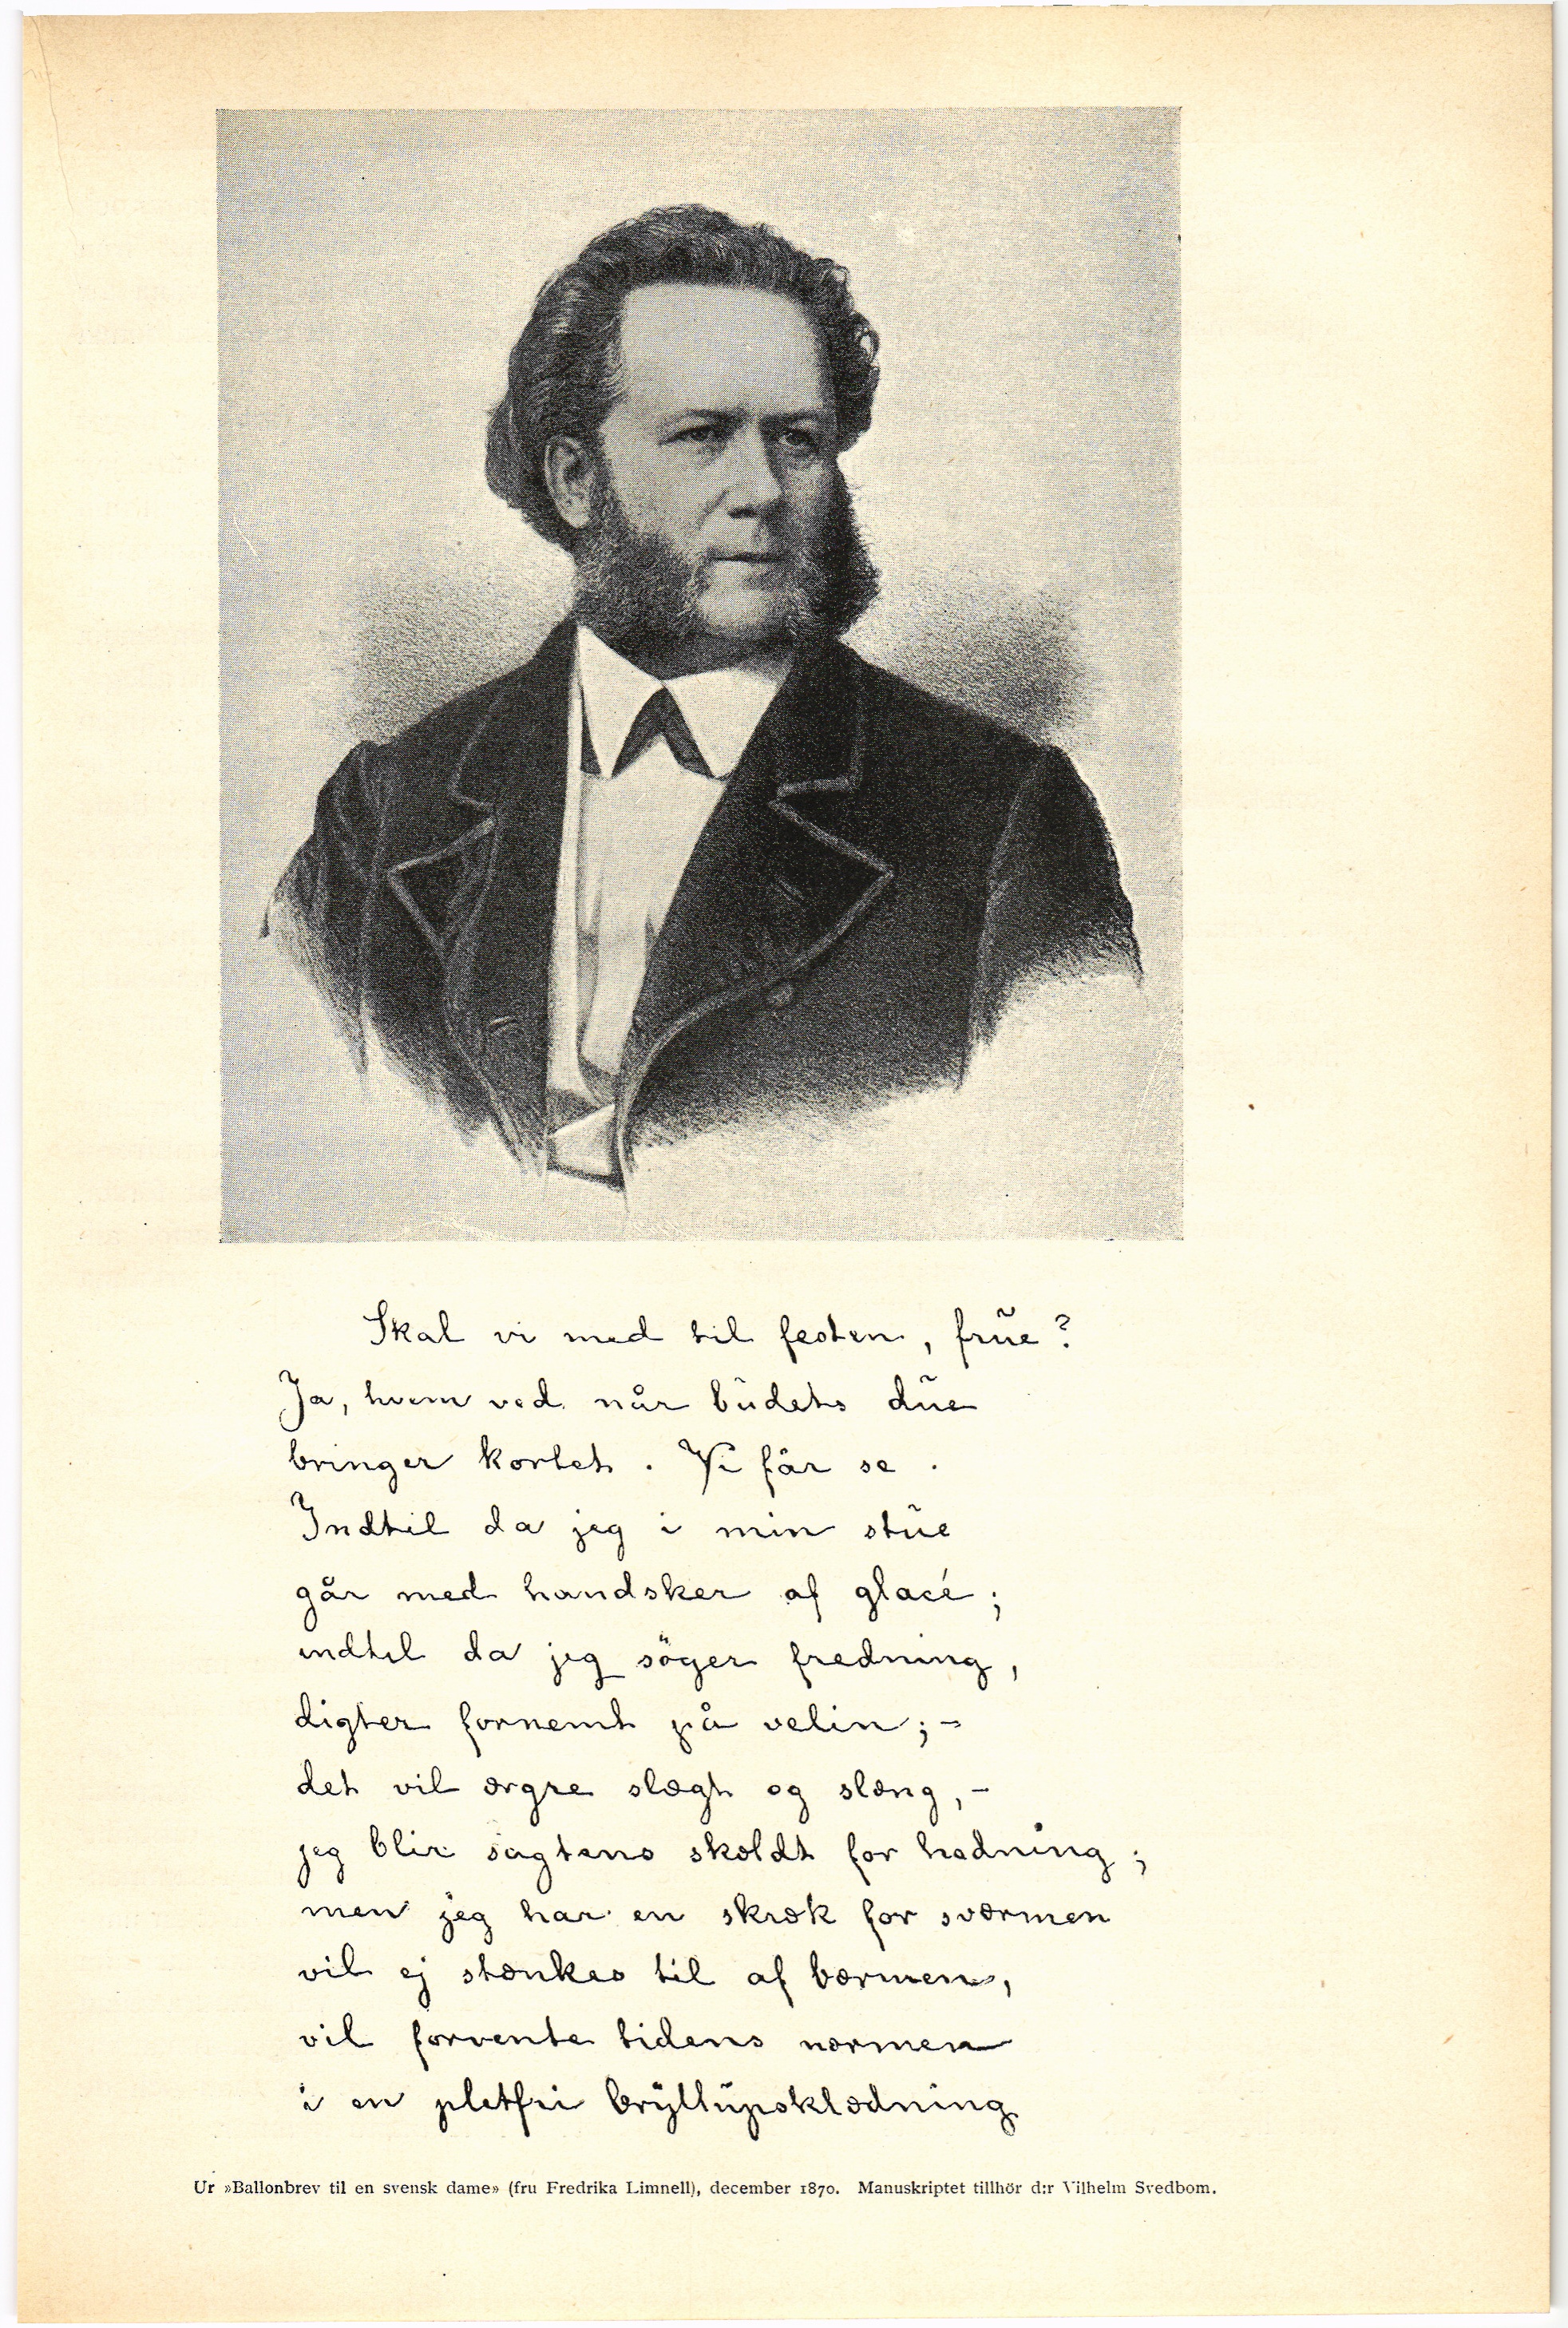 Skal vi med til festen, frue?
Ja, hvem ved når budets due
bringer kortet. Vi får se.
Indtil da jeg i min stue
går med handsker af glacé;
indtil da jeg söger fredning,
digter fornemt på velin; –
det vil ærgre slægt og slæng, –
jeg blir sagtens skældt for hedning;
men jeg har en skræk for sværmen
vil ej stænkes til af bærmen,
vil forvente tidens nærmen
i en pletfri bryllupsklædning
Ur »Ballonbrev til en svensk dame» (fru Fredrika Limnell), december 1870. Manuskriptet tillhör d:r Vilhelm Svedbom.